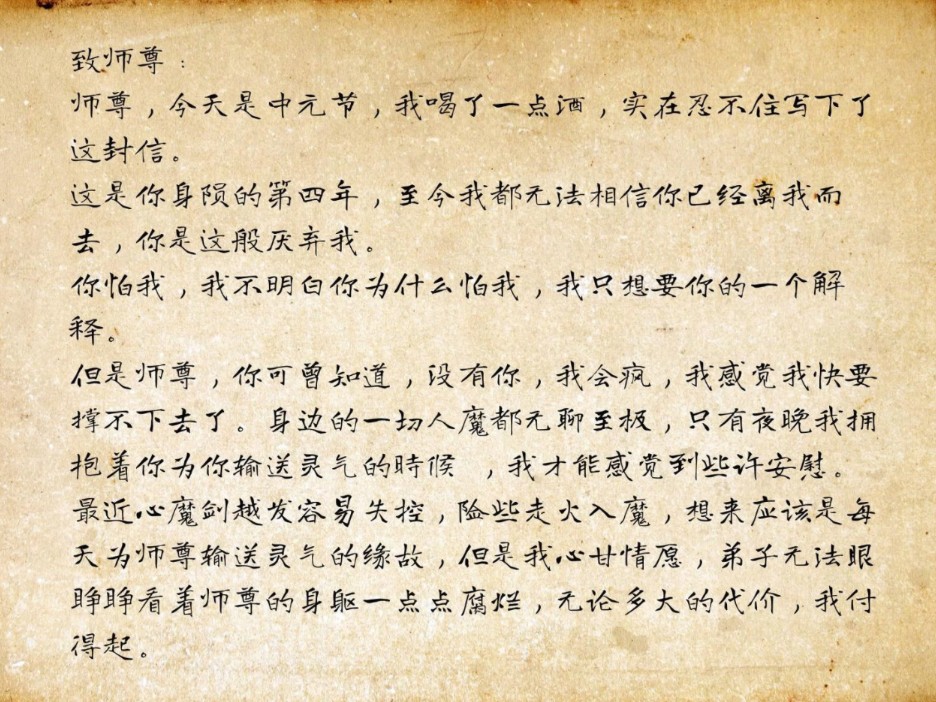 致师尊：
师尊，今天是中元节，我喝了一点酒，实在忍不住写下了
这封信。
这是你身陨的第四年，至今我都无法相信你已经离我而
去，你是这般厌弃我。
你怕我，我不明白你为什么怕我，我只想要你的一个解
释。
但是师尊，你可曾知道，没有你，我会疯，我感觉我快要
撑不下去了。身边的一切人魔都无聊至极，只有夜晚我拥
抱着你为你输送灵气的時候 ，我才能感觉到些许安慰。
最近心魔剑越发容易失控，险些走火入魔，想来应该是每
天为师尊输送灵气的缘故，但是我心甘情愿，弟子无法眼
睁睁看着师尊的身躯一点点腐烂，无论多大的代价，我付
得起。